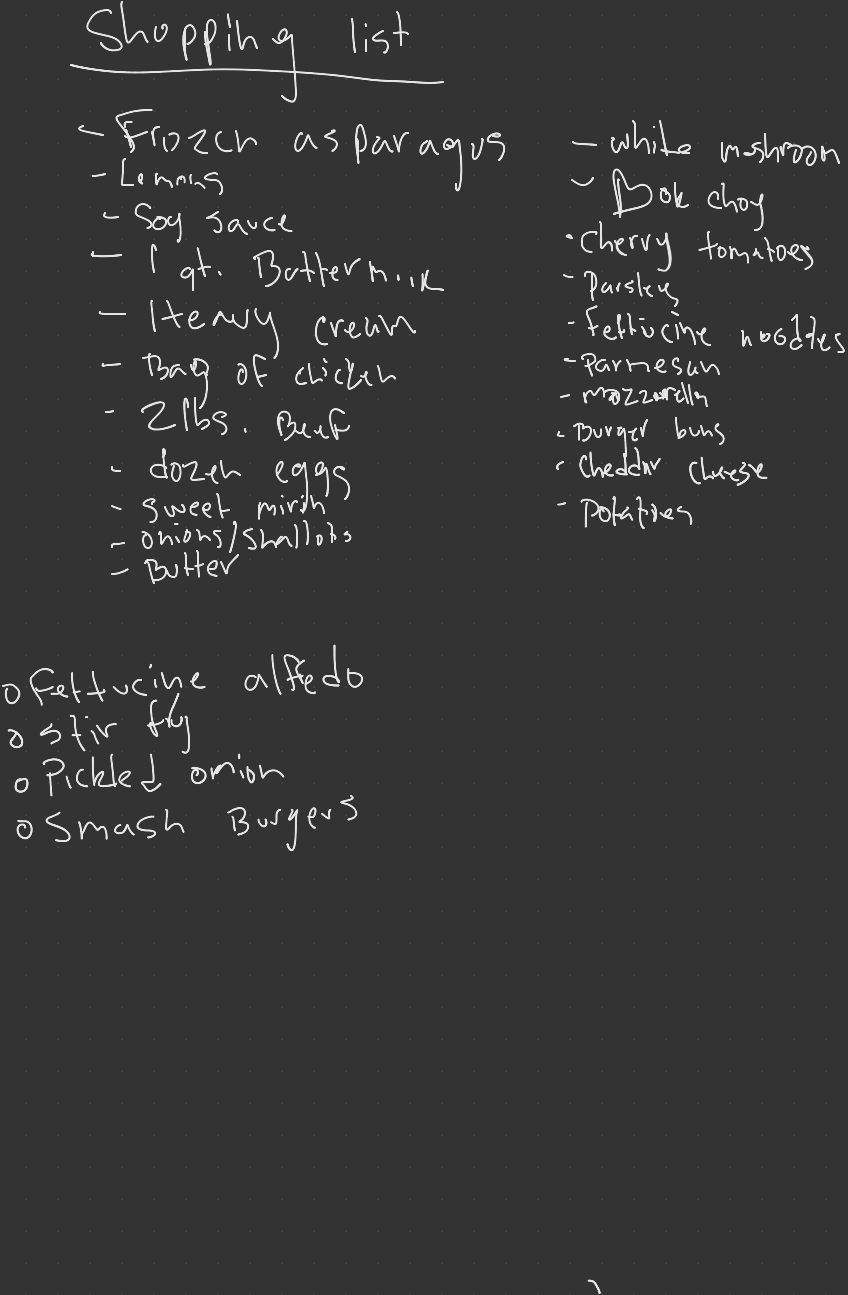 Shopping list
- Frozen asparagus
- Lemons
- Soy sauce
- 1 qt. Buttermilk
- Heavy cream
- Bag of chicken
- 2 lbs. Beef
- dozen eggs
- sweet mirin
- onions/shallots
- Butter
- white mushroom
- Bok choy
- Cherry tomatoes
- Parsley
- Fettucine noodles
- Parmesan
- mozzarella
- Burger buns
- Cheddar cheese
- Potatoes
o Fettucine alfredo
o stir fry
o Pickled onion
o Smash Burgers